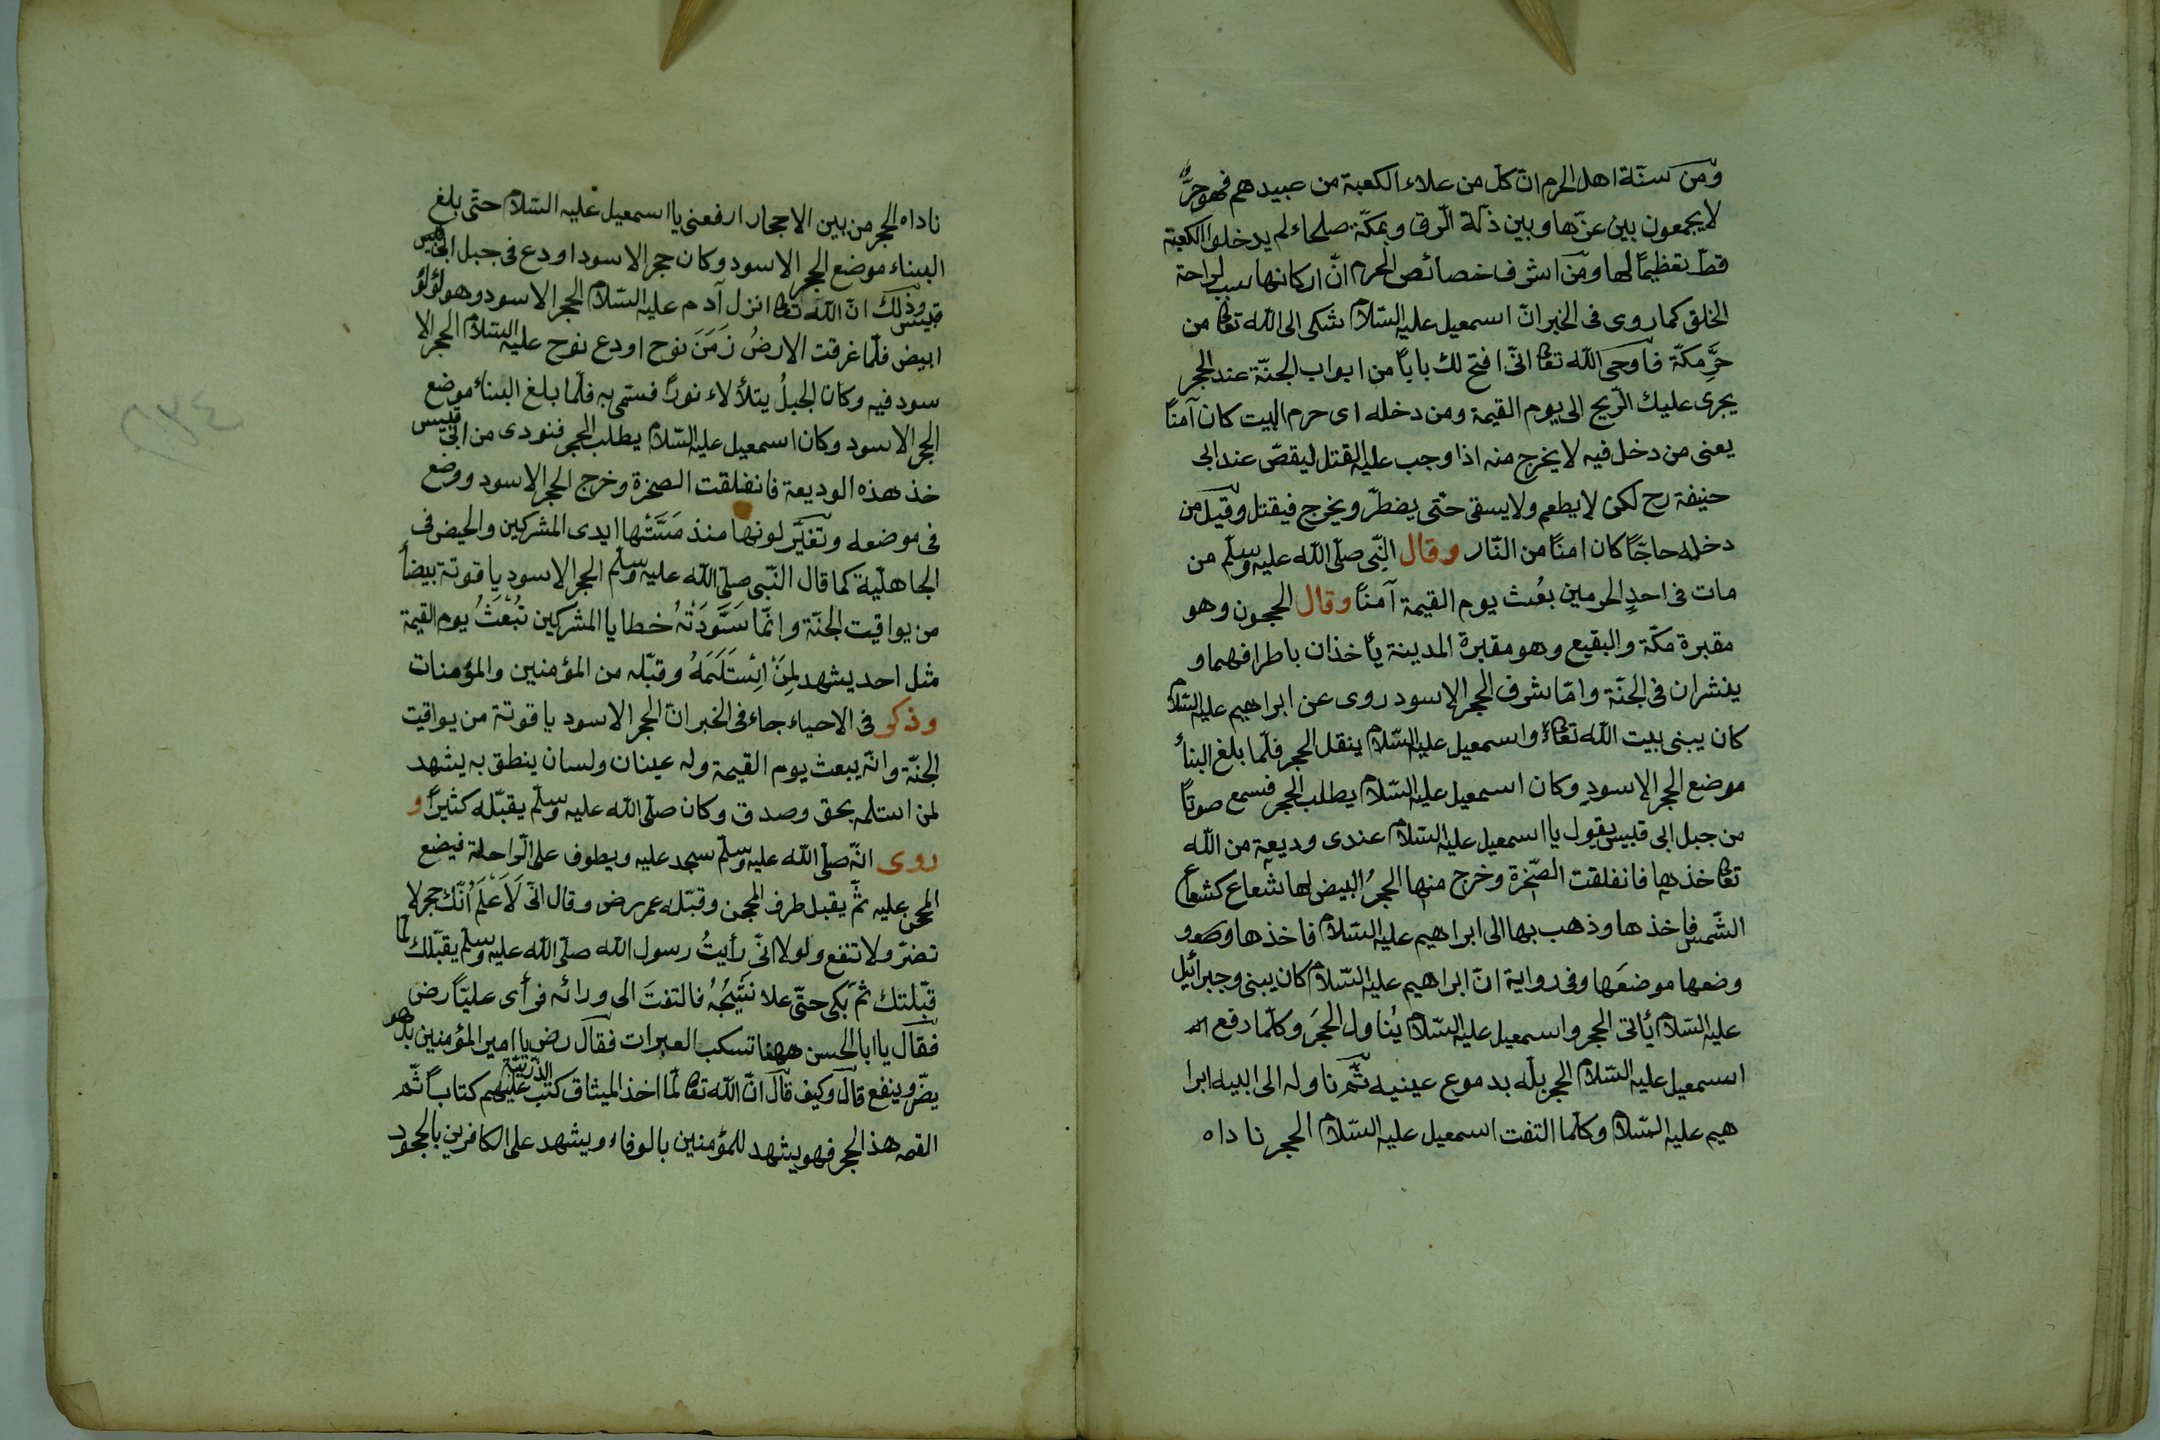 ومن سنّة اهل الحرم انّ كلّ من علاء الكعبة من عبيدهم فهو حرّ
لا يجمعون بين عزّها وبين ذلّة الرّق وبمكّة صلحاء لم يدخلوا الكعبة
قطّ تعظيمًا لها ومن اشرف خصائص الحرم انّ اركانها سبب لراحة
الخلق كما روى فى الخبر انّ اسمعيل عليه السّلام شكى الى الله تعا من
حَرِّ مكّة فاوحى الله تعا انّى افتح لك بابًا من ابواب الجنّة عند الحجر
يجرى عليك الرّيح الى يوم القيمة ومن دخله اى حرم البيت كان آمنًا
يعنى من دخل فيه لا يخرج منه اذا وجب عليه القتل ليقصّ عند ابى
حنيفة رح لكن لا يطعم ولا يسقى حتّى يضطرّ ويخرج فيقتل وقيل من
دخله حاجّا كان امنًا من النّار وقال النّبى صلّى الله عليه وسلّم من
مات فى احدِ الحرمين بعُث يوم القيمة آمنًا وقال الحجون وهو
مقبرة مكّة والبقيع وهو مقبرة المدينة يأخذان باطرافهما و
ينشران فى الجنّة وامّا شرف الحجر الاسود روى عن ابراهيم عليه السّلام
كان يبنى بيت الله تعا واسمعيل عليه السّلام ينقل الحجر فلّما بلغ البنأ
موضع الحجر الاسود وكان اسمعيل عليه السّلام يطلب الحجر فسمع صوتًا
من جبل ابى قبيس يقول يا اسمعيل عليه السّلام عندى وديعة من الله
تعا خذ بها فانفلقت الصّخرة وخرج منها الحجرُ البيض لها شعاع كشعاع
الشّمس فاخذها وذهب بها الى ابراهيم عليه السّلام فاخذها و
وضعها موضعَها وفى رواية انّ ابراهيم عليه السّلام كان يبنى وجبرائيل
عليه السّلام يأتى الحجر واسمعيل عليه السّلام يُناول الحجَر وكلّما دفع
اسمعيل عليه السّلام الحجر بلّه بدموع عينيه ثمّ ناوله الى ابيه ابرا
هيم عليه السّلام وكلّما التفت اسمعيل عليه السّلام الحجر ناداه
ناداه الحجر من بين الاحجار ارفعنى يا اسمعيل عليه السّلام حتّى بلغ
البناء موضع الحجر الاسود وكان حجر الاسود اودع فى جبل ابى قبيس
وذلك انّ الله تعا انزل آدم عليه السّلام الحجر الاسود وهو لؤلؤ
ابيض فلّما غرقت الارضُ زَمَنَ نوح اودع نوح عليه السّلام الحجر الا
سود فيه وكان الجبلُ يتلألاء نورًا فستمى به فلّما بلغ البناء موضع
الحجر الاسود وكان اسمعيل عليه السّلام يطلب الحجر فنودى من ابى قبيس
خذ هذه الوديعة فانفلقت الصخرة وخرج الحجر الاسود ووضع
فى موضعه وتغيَّر لونها منذ مسَّتْها ايدى المشركين والحيض فى
الجاهليّة كما قال النّبى صلّى الله عليه وسلّم الحجر الاسود ياقوتة بيضأ
من يواقيت الجنّة وانّما سَوَّدَتْهُ خطايا المشركين تُبْعَثُ يوم القيمة
مثل احد يشهد لِمَنْ اِسْتَلَمَهُ وقبّله من المؤمنين والمؤمنات
وذكر فى الاحياء جاء فى الخبر انّ الحجر الاسود ياقوتة من يواقيت
الجنّة وانّه يبعث يوم القيمة وله عينان ولسان ينطق به يشهد
لمن استلمه بحق وصدق وكان صلّى الله عليه وسلّم يقبّله كثيرًا و
روى انّه صلّى الله عليه وسلّم سجد عليه ويطوف على الرّاحلة فيضع
المحجن عليه ثمّ يقبل طرف المحجن وقبّله عمر رض وقال انّى لَاَعْلَمُ اَنّك حجر لا
تضرّ ولا تنفع ولولا انّى رأيتُ رسول الله صلّى الله عليه وسلّم يقبّلك لما
قبّلتك ثمّ بَكى حتّى علا نشيجُهُ فالتفتَ الى ورائه فرأى عليًّا رض
فقال يا ابا الحسن ههنا تسكب العبرات فقال رض يا امير المؤمنين بل هو
يضّر وينفع قال وكيف قال انّ الله تعا لمّا اخذ الميثاق كتب عليهم الذّرّيّة كتابًا ثمّ
القمه هذا الحجر فهو يشهد للمؤمنين بالوفاء ويشهد على الكافرين بالجحود